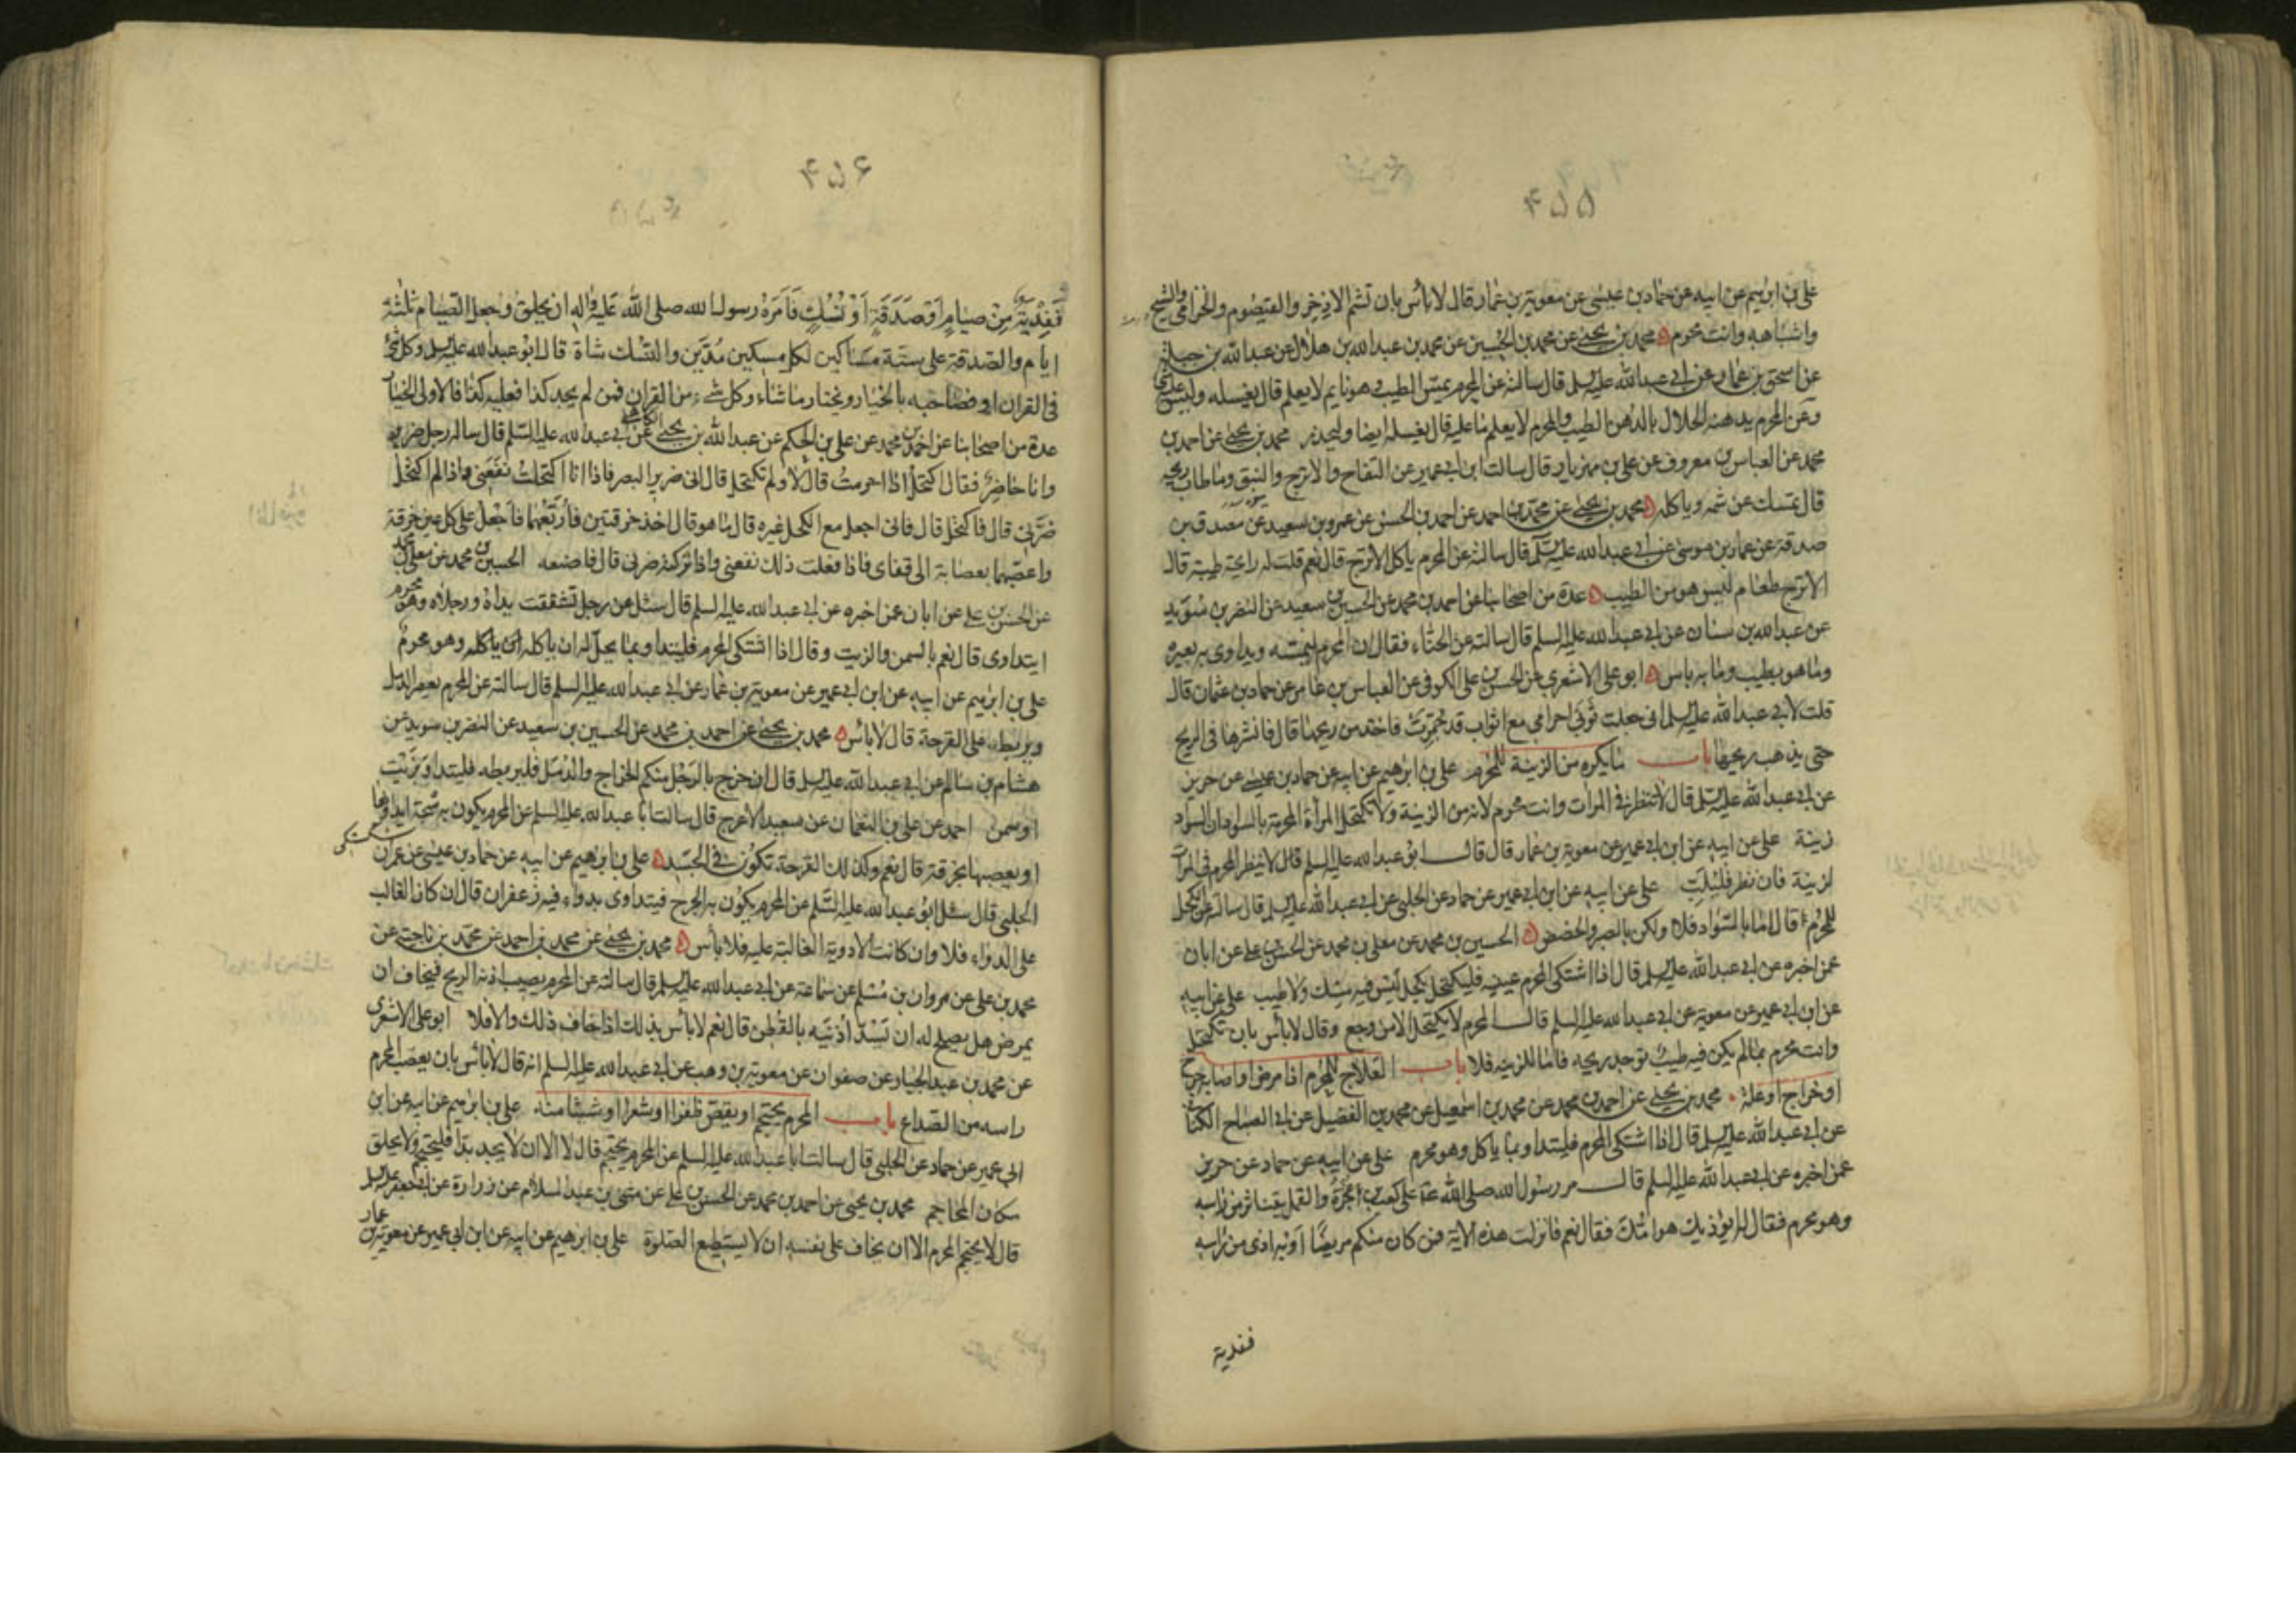 ۴۵۵
علي بن ابرهيم عن ابيه عن حماد بن عيسى عن معوية بن عمار قال لا بأس بان تشم الاذخر والقيصوم والخزامى والشيح
واشباهه وانت محرم محمد بن يحيى عن محمد بن الحسين عن محمد بن عبد الله بن هلال عن عبد الله بن جبلة
عن اسحق بن عمار عن ابي عبد الله عليه السلم قال سالته عن المحرم يمس الطيب وهو نايم لا يعلم قال يغسله وليس عليه شئ
وعن المحرم يدهنه الحلال بالدهن الطيب والمحرم لا يعلم ما عليه قال يغسله ايضا وليحذر محمد بن يحيى عن احمد بن
محمد عن العباس بن معروف عن علي بن مهزيار قال سالت ابن ابي عمير عن التفاح والاترج والنبق وما طاب ريحه
قال تمسك عن شمه وياكله محمد بن يحيى عن محمد بن احمد عن احمد بن الحسن عن عمرو بن سعيد عن مصدق بن
صدقة عن عمار بن موسى عن ابي عبد الله عليه السلم قال سالته عن المحرم ياكل الاترج قال نعم قلت له رايحة طيبة قال
الاترج طعام ليس هو من الطيب عدة من اصحابنا عن احمد بن محمد عن الحسين بن سعيد عن النضر بن سويد
عن عبد الله بن سنان عن ابي عبد الله عليه السلم قال سالته عن الحناء فقال ان المحرم ليمسه ويداوى به بعيره
وما هو بطيب وما به باس ابو علي الاشعري عن الحسن بن علي الكوفي عن العباس بن عامر عن حماد بن عثمان قال
قلت لابي عبد الله عليه السلم اني جعلت ثوبي احرامي مع اثواب قد جمرت فاخذ من ريحها قال فانشرها في الريح
حتى يذهب ريحها باب ما يكره من الزينة للمحرم علي بن ابرهيم عن ابيه عن حماد بن عيسى عن حريز
عن ابي عبد الله عليه السلم قال لا تنظر في المرات وانت محرم لانه من الزينة ولا تكتحل المرأة المحرمة بالسواد ان السواد
زينة علي عن ابيه عن ابن ابي عمير عن معوية بن عمار قال قال ابو عبد الله عليه السلم قال لا ينظر المحرم في المرآت
لزينة فان نظر فليلب علي عن ابيه عن ابن ابي عمير عن حماد عن الحلبي عن ابي عبد الله عليه السلم قال سالته عن الكحل
للمحرم قال اما بالسواد فلا ولكن بالصبر والحضض الحسين بن محمد عن معلى بن محمد عن الحسن بن علي عن ابان
عمن اخبره عن ابي عبد الله عليه السلم قال اذا اشتكى المحرم عينيه فليكتحل بكحل ليس فيه مسك ولا طيب علي عن ابيه
عن ابن ابي عمير عن معوية عن ابي عبد الله عليه السلم قال المحرم لا يكتحل الا من وجع وقال لا بأس بان تكتحل
وانت محرم بما لم يكن فيه طيب توجد ريحه فاما للزينه فلا باب العلاج للمحرم اذا مرض او اصابه جرح
او خراج او علة محمد بن يحيى عن احمد بن محمد عن محمد بن اسمعيل عن محمد بن الفضيل عن ابي الصباح الكناني
عن ابي عبد الله عليه السلم قال اذا اشتكى المحرم فليتداو بما ياكل وهو محرم علي عن ابيه عن حماد عن حريز
عمن اخبره عن ابي عبد الله عليه السلم قال مر رسول الله صلى الله عليه على كعب بن عجرة والقمل يتناثر من راسه
وهو محرم فقال له ايؤذيك هوامك فقال نعم فانزلت هذه الاية فمن كان منكم مريضا او به اذى من راسه
ففدية
۴۵۶
ففدية من صيام او صدقة او نسك فامره رسول الله صلى الله عليه واله ان يحلق وجعل الصيام ثلثة
ايام والصدقة على ستة مساكين لكل مسكين مدين والنسك شاة قال ابو عبد الله عليه السلم وكل شئ
في القران او فصاحبه بالخيار ويختار ما شاء وكل شيء من القران فمن لم يجد كذا فعليه كذا فالاولى الخيار
عدة من اصحابنا عن احمد بن محمد عن علي بن الحكم عن عبد الله بن يحيى الكاهلي عن ابي عبد الله عليه السلم قال ساله رجل ضرير
وانا حاضر فقال اكتحل اذا احرمت قال لا ولم تكتحل قال اني ضرير البصر فاذا انا اكتحلت نفعني واذا لم اكتحل
ضرني قال فاكتحل قال فاني اجعل مع الكحل غيره قال ما هو قال اخذ خرقتين فأربعهما فاجعل على كل عين خرقة
واعصبهما بعصابة الى قفاى فاذا فعلت ذلك نفعني واذا تركته ضرني قال فاصنعه الحسين بن محمد عن معلى بن محمد
عن الحسن بن علي عن ابان عمن اخبره عن ابي عبد الله عليه السلم قال سئل عن رجل تشققت يداه ورجلاه وهو محرم
ايتداوى قال نعم بالسمن والزيت وقال اذا اشتكى المحرم فليتداو بما يحل له ان ياكله وهو محرم
علي بن ابرهيم عن ابيه عن ابن ابي عمير عن معوية بن عمار عن ابي عبد الله عليه السلم قال سالته عن المحرم يعصر الدمل
ويربط على القرحة قال لا بأس محمد بن يحيى عن احمد بن محمد عن الحسين بن سعيد عن النضر بن سويد عن
هشام بن سالم عن ابي عبد الله عليه السلم قال ان خرج بالرجل منكم الخراج والدمل فليربطه فليتداو بزيت
او سمن احمد عن علي بن النعمان عن سعيد الاعرج قال سالت ابا عبد الله عليه السلم عن المحرم يكون به شجة ايداويها
او يعصبها بخرقة قال نعم وكذلك القرحة تكون في الجسد علي بن ابرهيم عن ابيه عن حماد بن عيسى عن عمران
الحلبي قال سئل ابو عبد الله عليه السلم عن المحرم يكون به الجرح فيتداوى بدواء فيه زعفران قال ان كان الغالب
على الدواء فلا وان كانت الادوية الغالبة عليه فلا بأس محمد بن يحيى عن محمد بن احمد عن محمد بن ناجية عن
محمد بن علي عن مروان بن مسلم عن سماعة عن ابي عبد الله عليه السلم قال سالته عن المحرم يصيب اذنه الريح فيخاف ان
يمرض هل يصلح له ان يسد اذنيه بالقطن قال نعم لا بأس بذلك اذا خاف ذلك والا فلا ابو علي الاشعري
عن محمد بن عبد الجبار عن صفوان عن معوية بن وهب عن ابي عبد الله عليه السلم انه قال لا بأس بان يعصب المحرم
راسه من الصداع باب المحرم يحتجم او يقص ظفرا او شعرا او شيئا منه علي بن ابرهيم عن ابيه عن ابن
ابي عمير عن حماد عن الحلبي قال سالت ابا عبد الله عليه السلم عن المحرم يحتجم قال لا الا ان لا يجد بدا فليحتجم ولا يحلق
مكان المحاجم محمد بن يحيى عن احمد بن محمد عن الحسن بن علي عن مثنى بن عبد السلام عن زرارة عن ابي جعفر عليه السلم
قال لا يحتجم المحرم الا ان يخاف على نفسه ان لا يستطيع الصلوة علي بن ابرهيم عن ابيه عن ابن ابي عمير عن معوية بن عمار